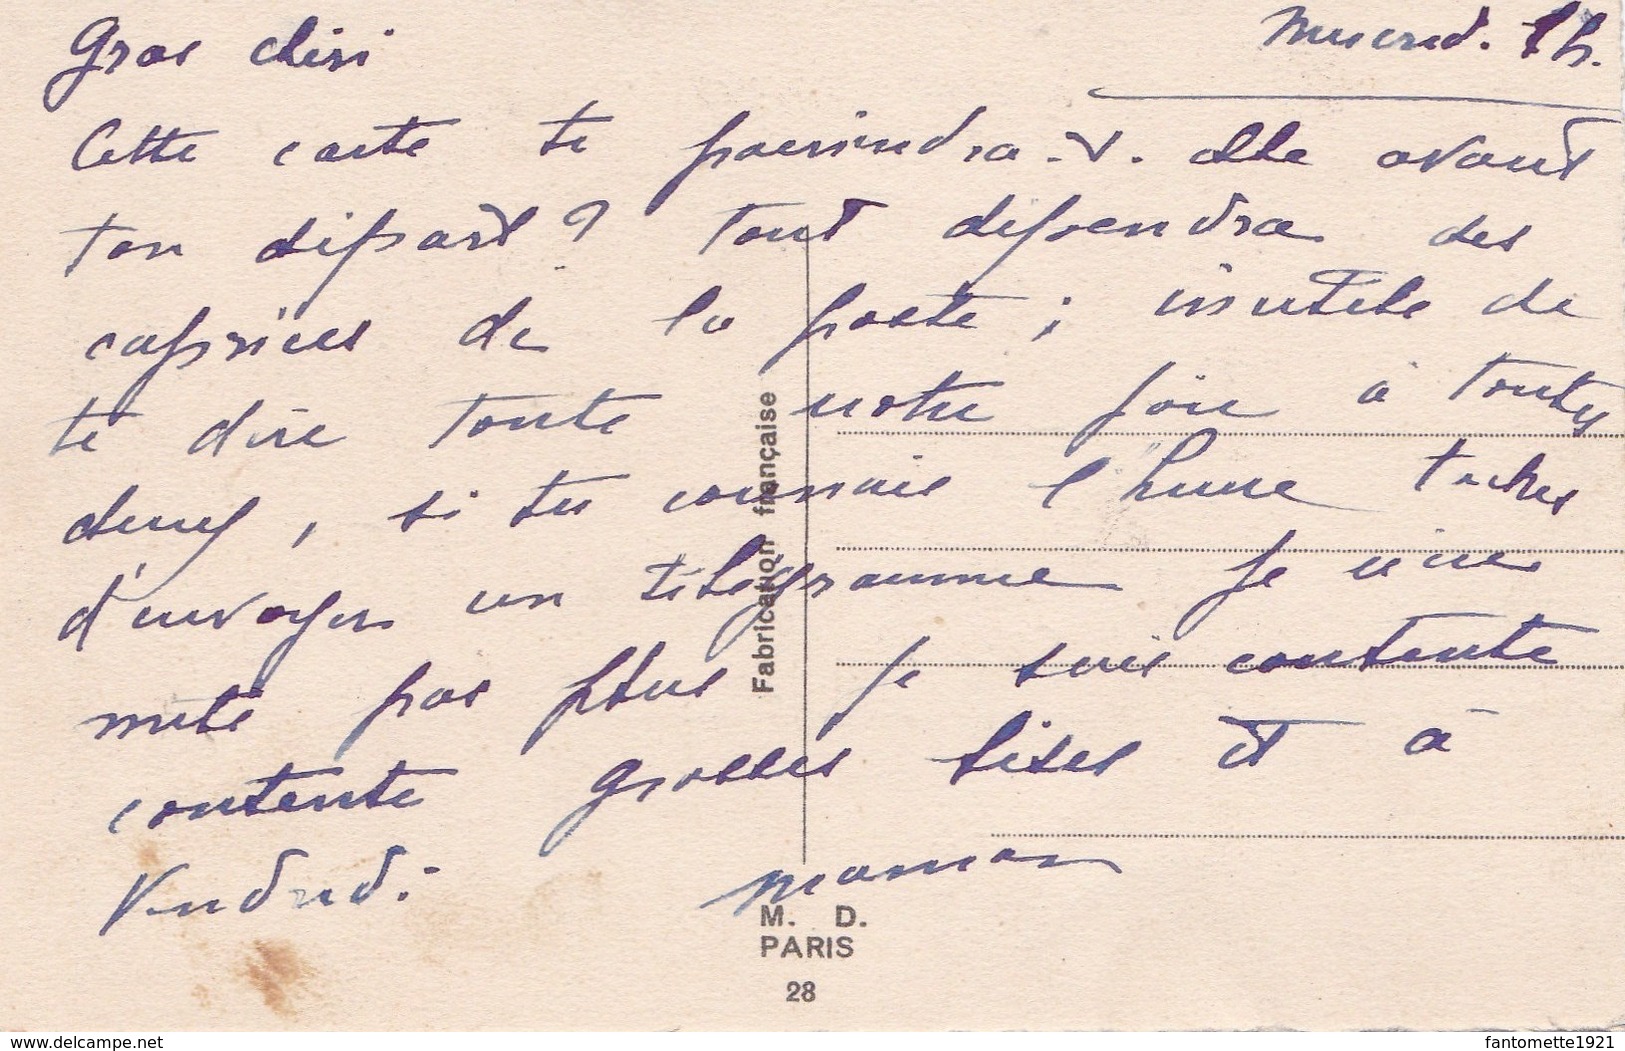 Mercredi. 1h.
Gros chéri
Cette carte te parviendra-t-elle avant
ton départ ? Tout dépendra des
caprices de la poste ; inutile de
te dire toute notre joie à toutes
deux, si tu connais l'heure tâches
d'envoyer un télégramme Je n'irai
pas plus Je suis contente
contente grosses bises et à
Vendredi.
maman
Fabrication française
M. D.
PARIS
28
www.delcampe.net
fantomette1921